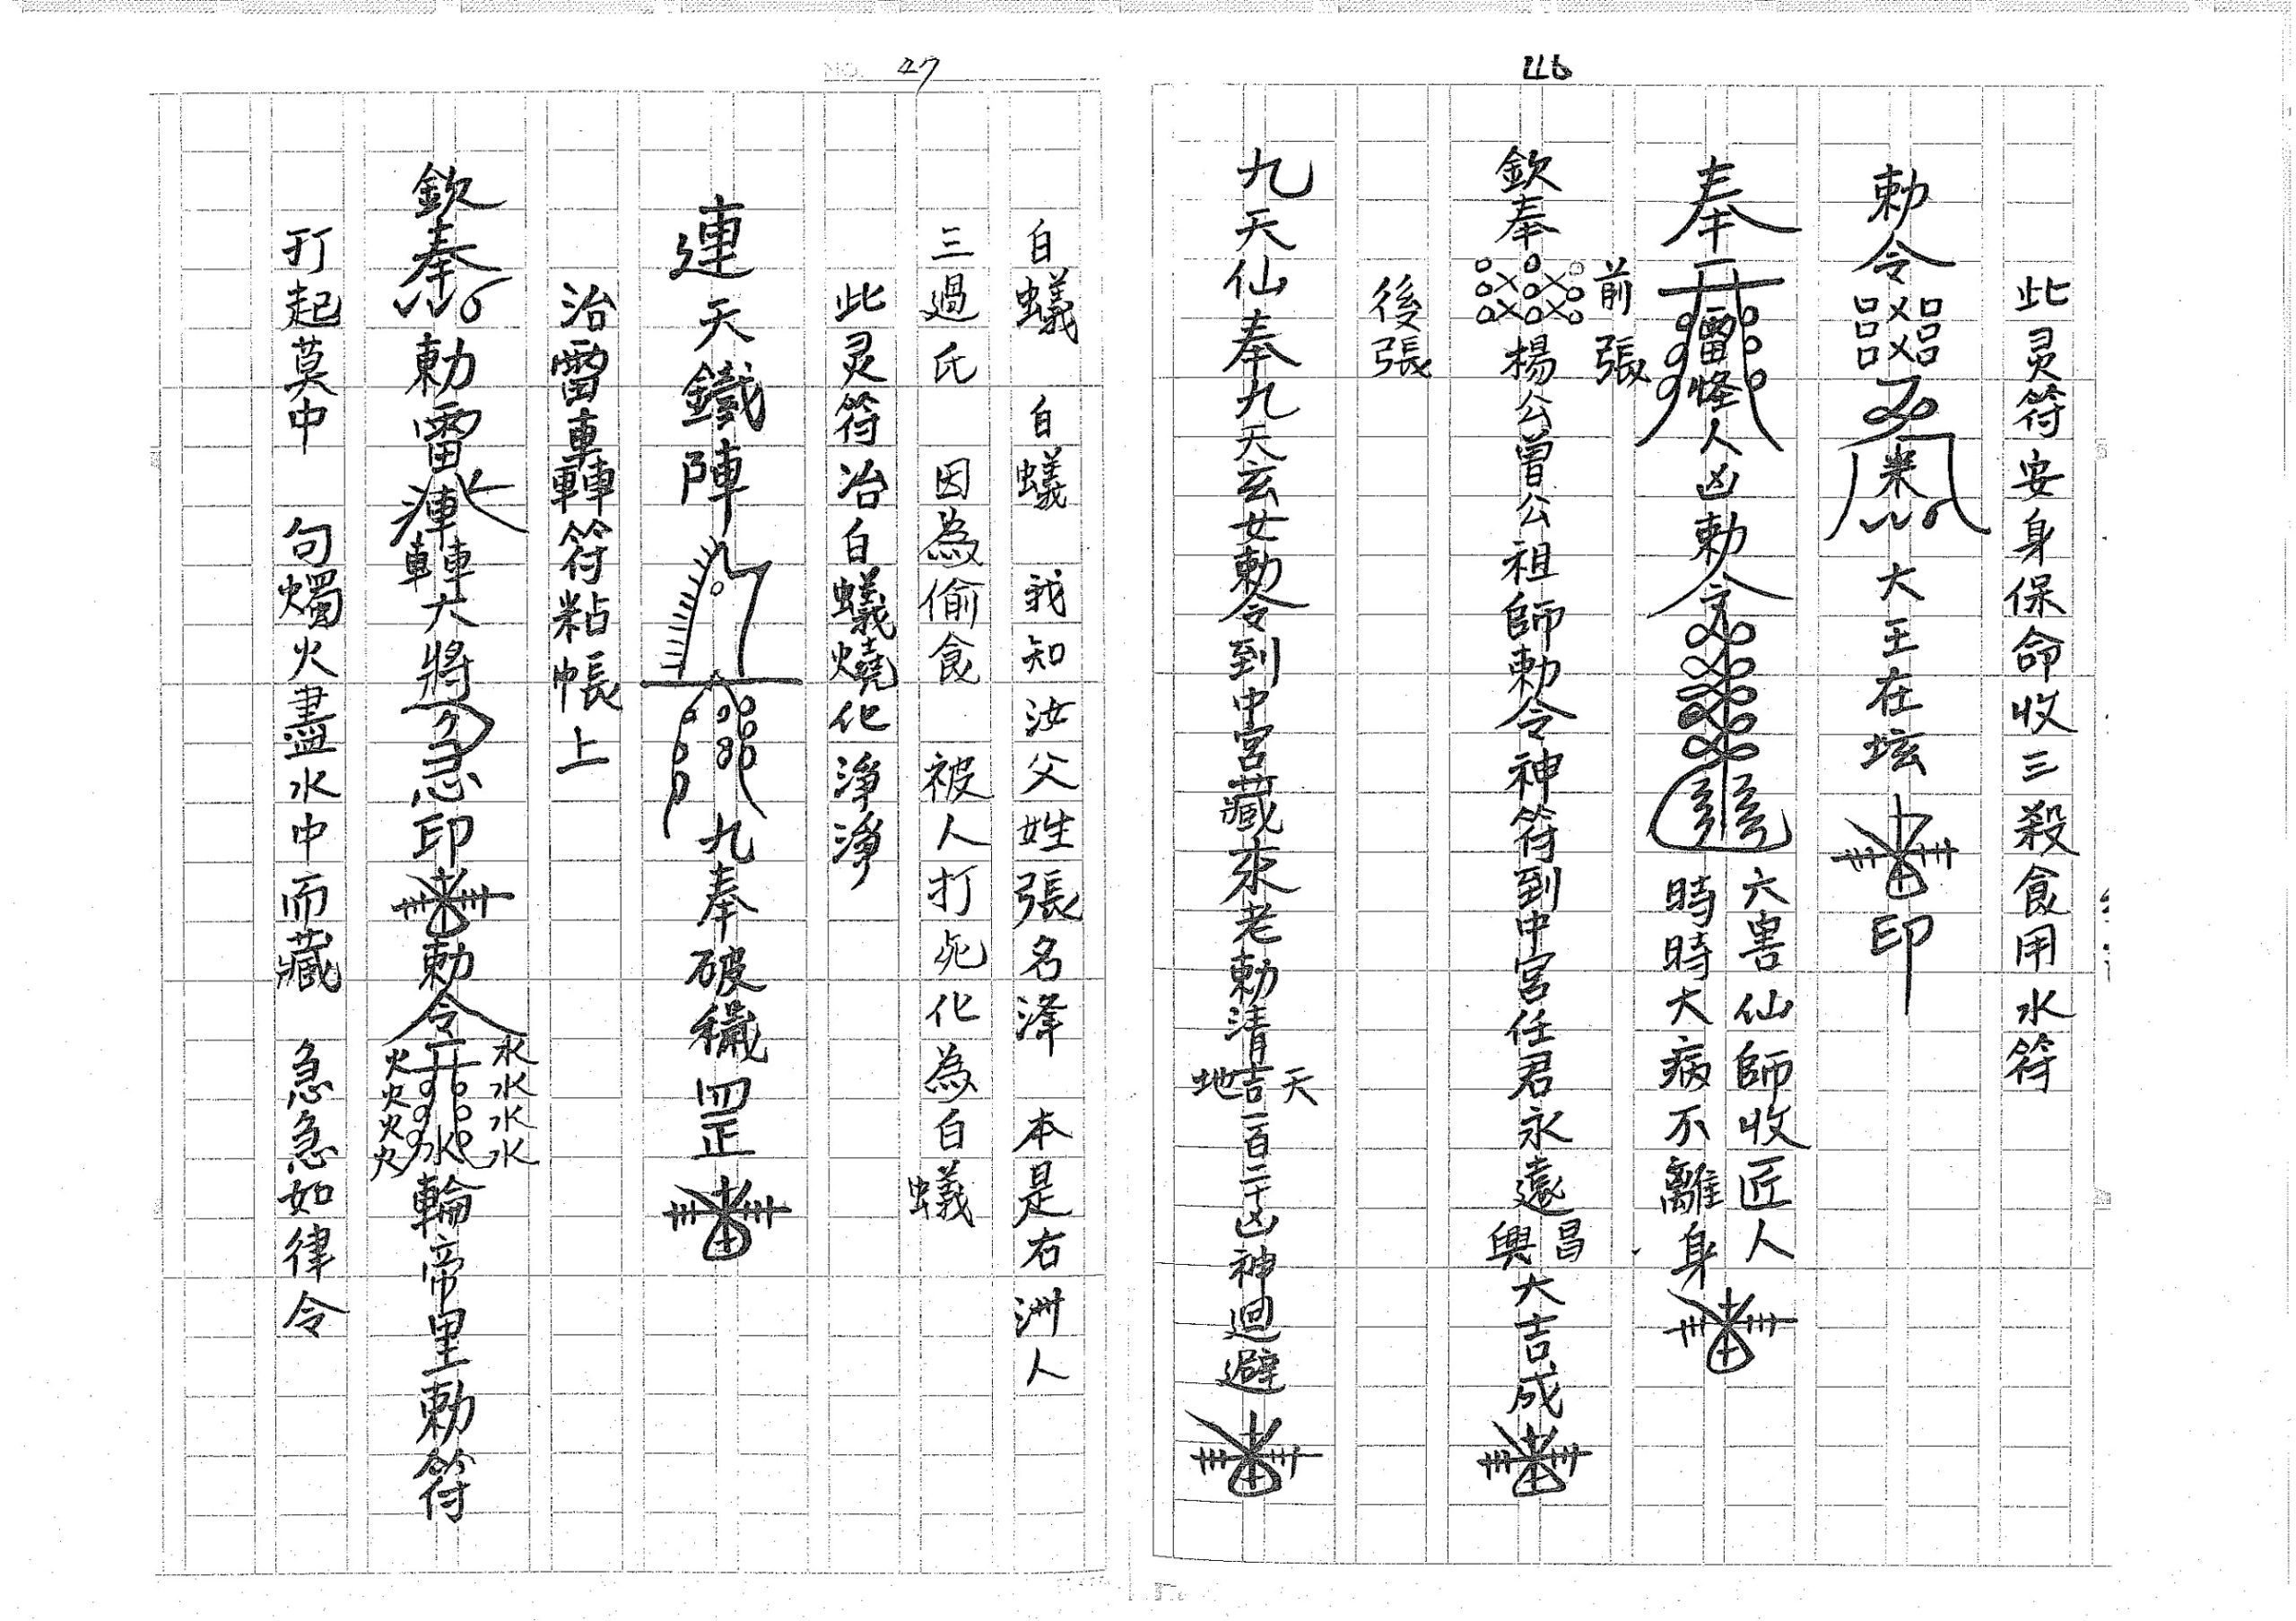 46
此灵符安身保命收三殺食用水符
勅令 大王在坛 印
奉 雷 人凶勅令 六害仙師收匠人
時時大病不離身
前張
欽奉 楊公曾公祖師勅令神符到中宮任君永遠昌興大吉成
後張
九天仙奉九天玄女勅令到中宮藏來老勅清吉天地一百二十凶神迴避
47
白蟻 白蟻 我知汝父姓張名 本是右洲人
三過氏 因為偷食 被人打死化為白蟻
此灵符治白蟻燒化淨淨
連天鐵陣 九奉破穢罡
治雷車轉符粘帳上
欽奉 勅雷 大將 急印 勅令 水水水水 火火火火 水 輪帝里勅符
打起莫中 句燭火盡水中而藏 急急如律令